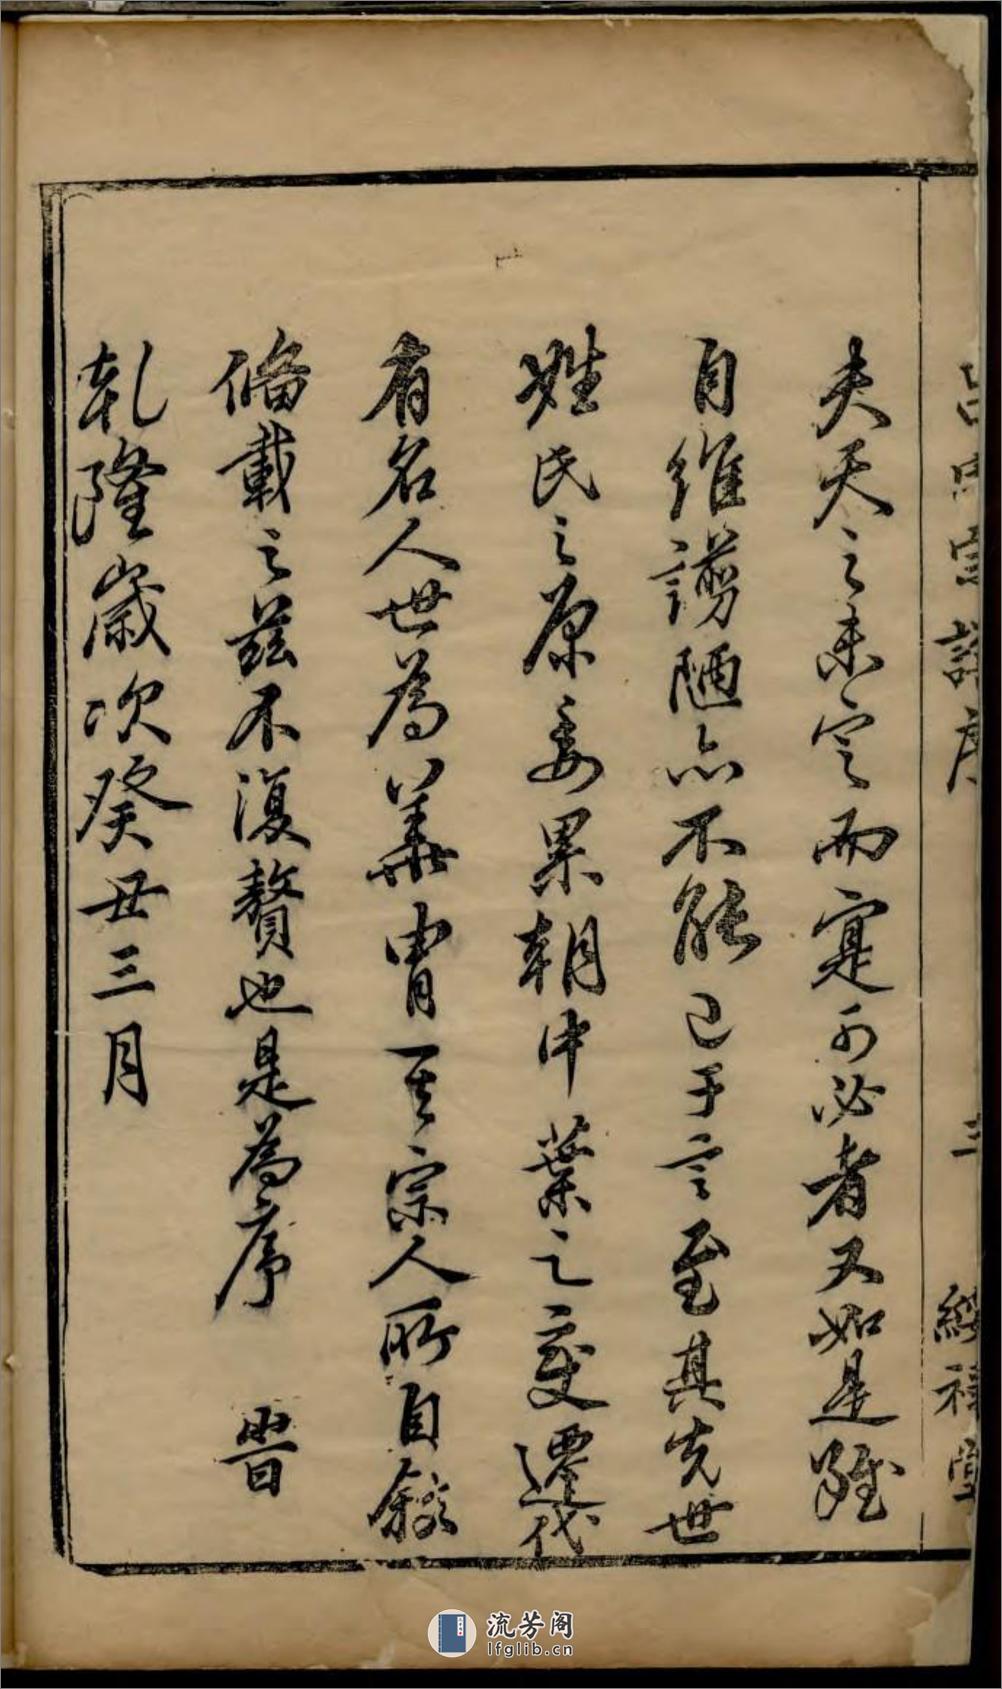 呂氏宗譜序 三 綏禄堂
夫天之未定而寔可必者又如是雖
自維謭陋亦不能已于言至其先世
姓氏之原委累朝中葉之变遷代
有名人世為華胄其宗人所自叙
俻載之兹不復贅也是為序 旹
乾隆歲次癸丑三月
流芳阁
lfglib.cn